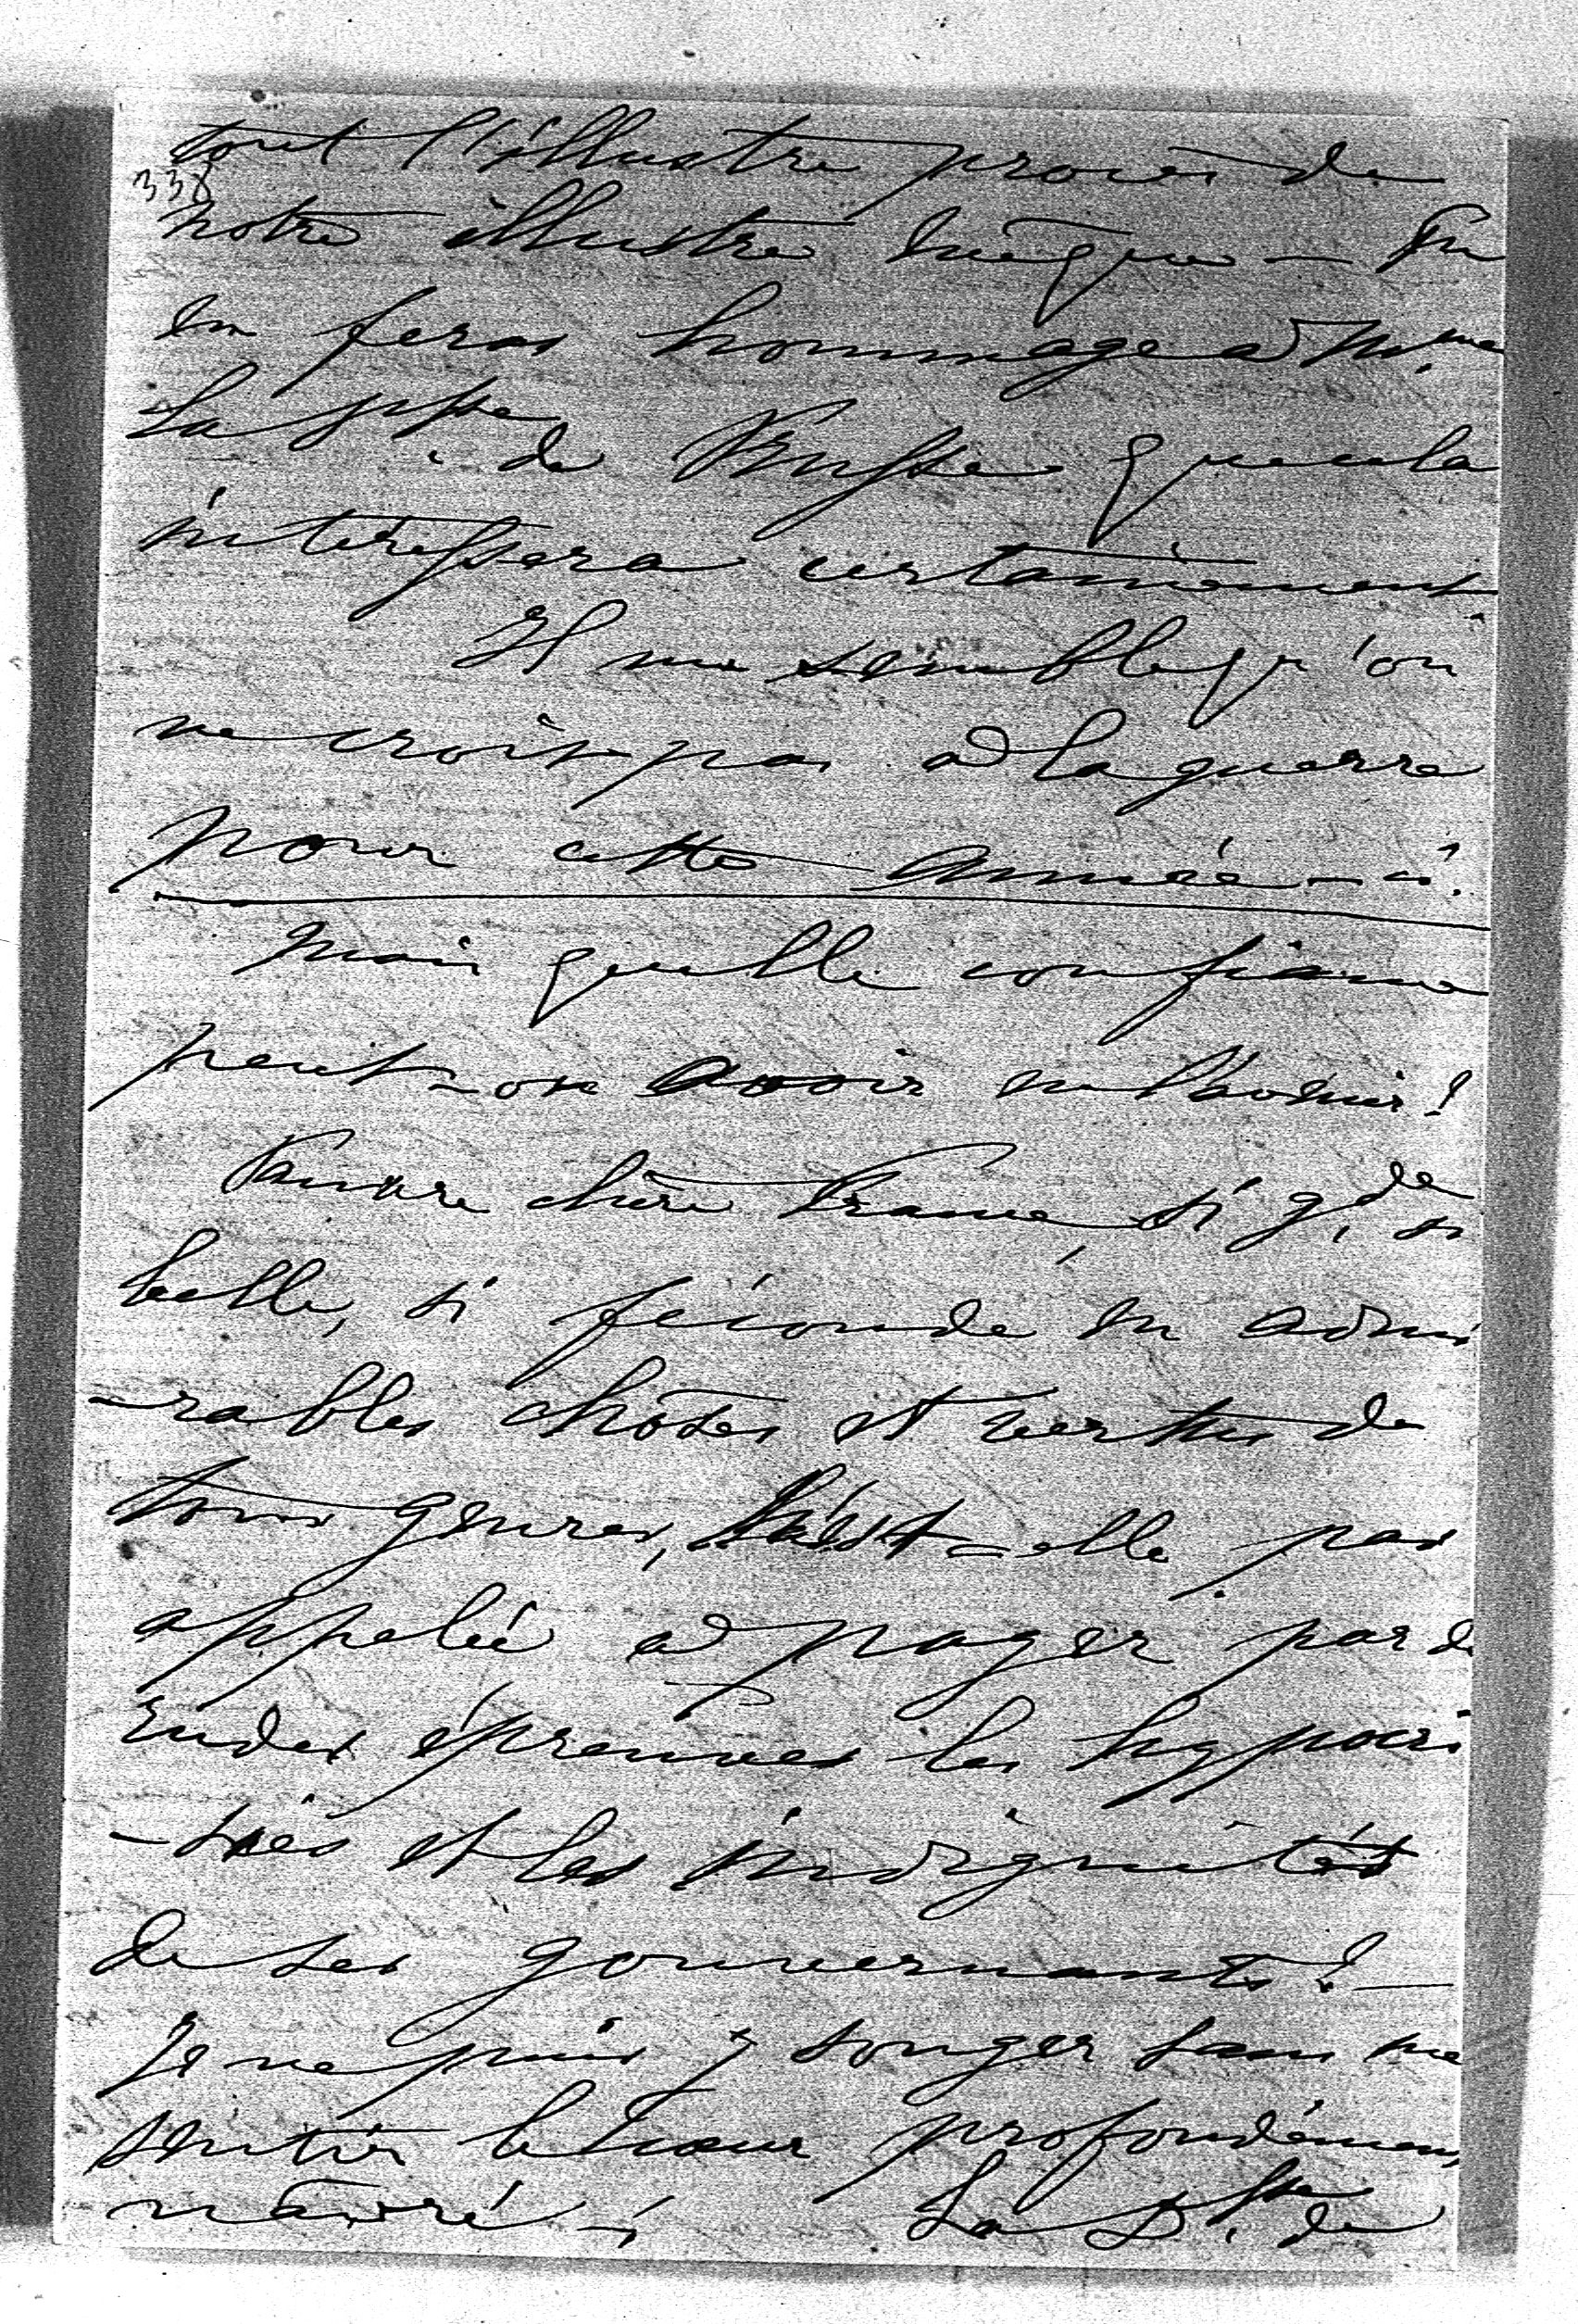 tout l'illustre procès de
338
notre illustre évêque — J'en
en feras hommage à Mme
la psse de Prusse que cela
intéressera certainement.
Il me semble qu'on
ne croit pas à la guerre
pour cette année-ci.
Mais quelle confiance
peut-on avoir en l'avenir!
Pauvre chère France, si gde si
belle, si féconde en admi
-rables choses et vertus de
tous genres, n'est-elle pas
appelée à payer par de
rudes épreuves les hypocri
-sies et les indignités
de ses gouvernants! —
Je ne puis y songer sans me
sentir le cœur profondément
navré — La Dsse de